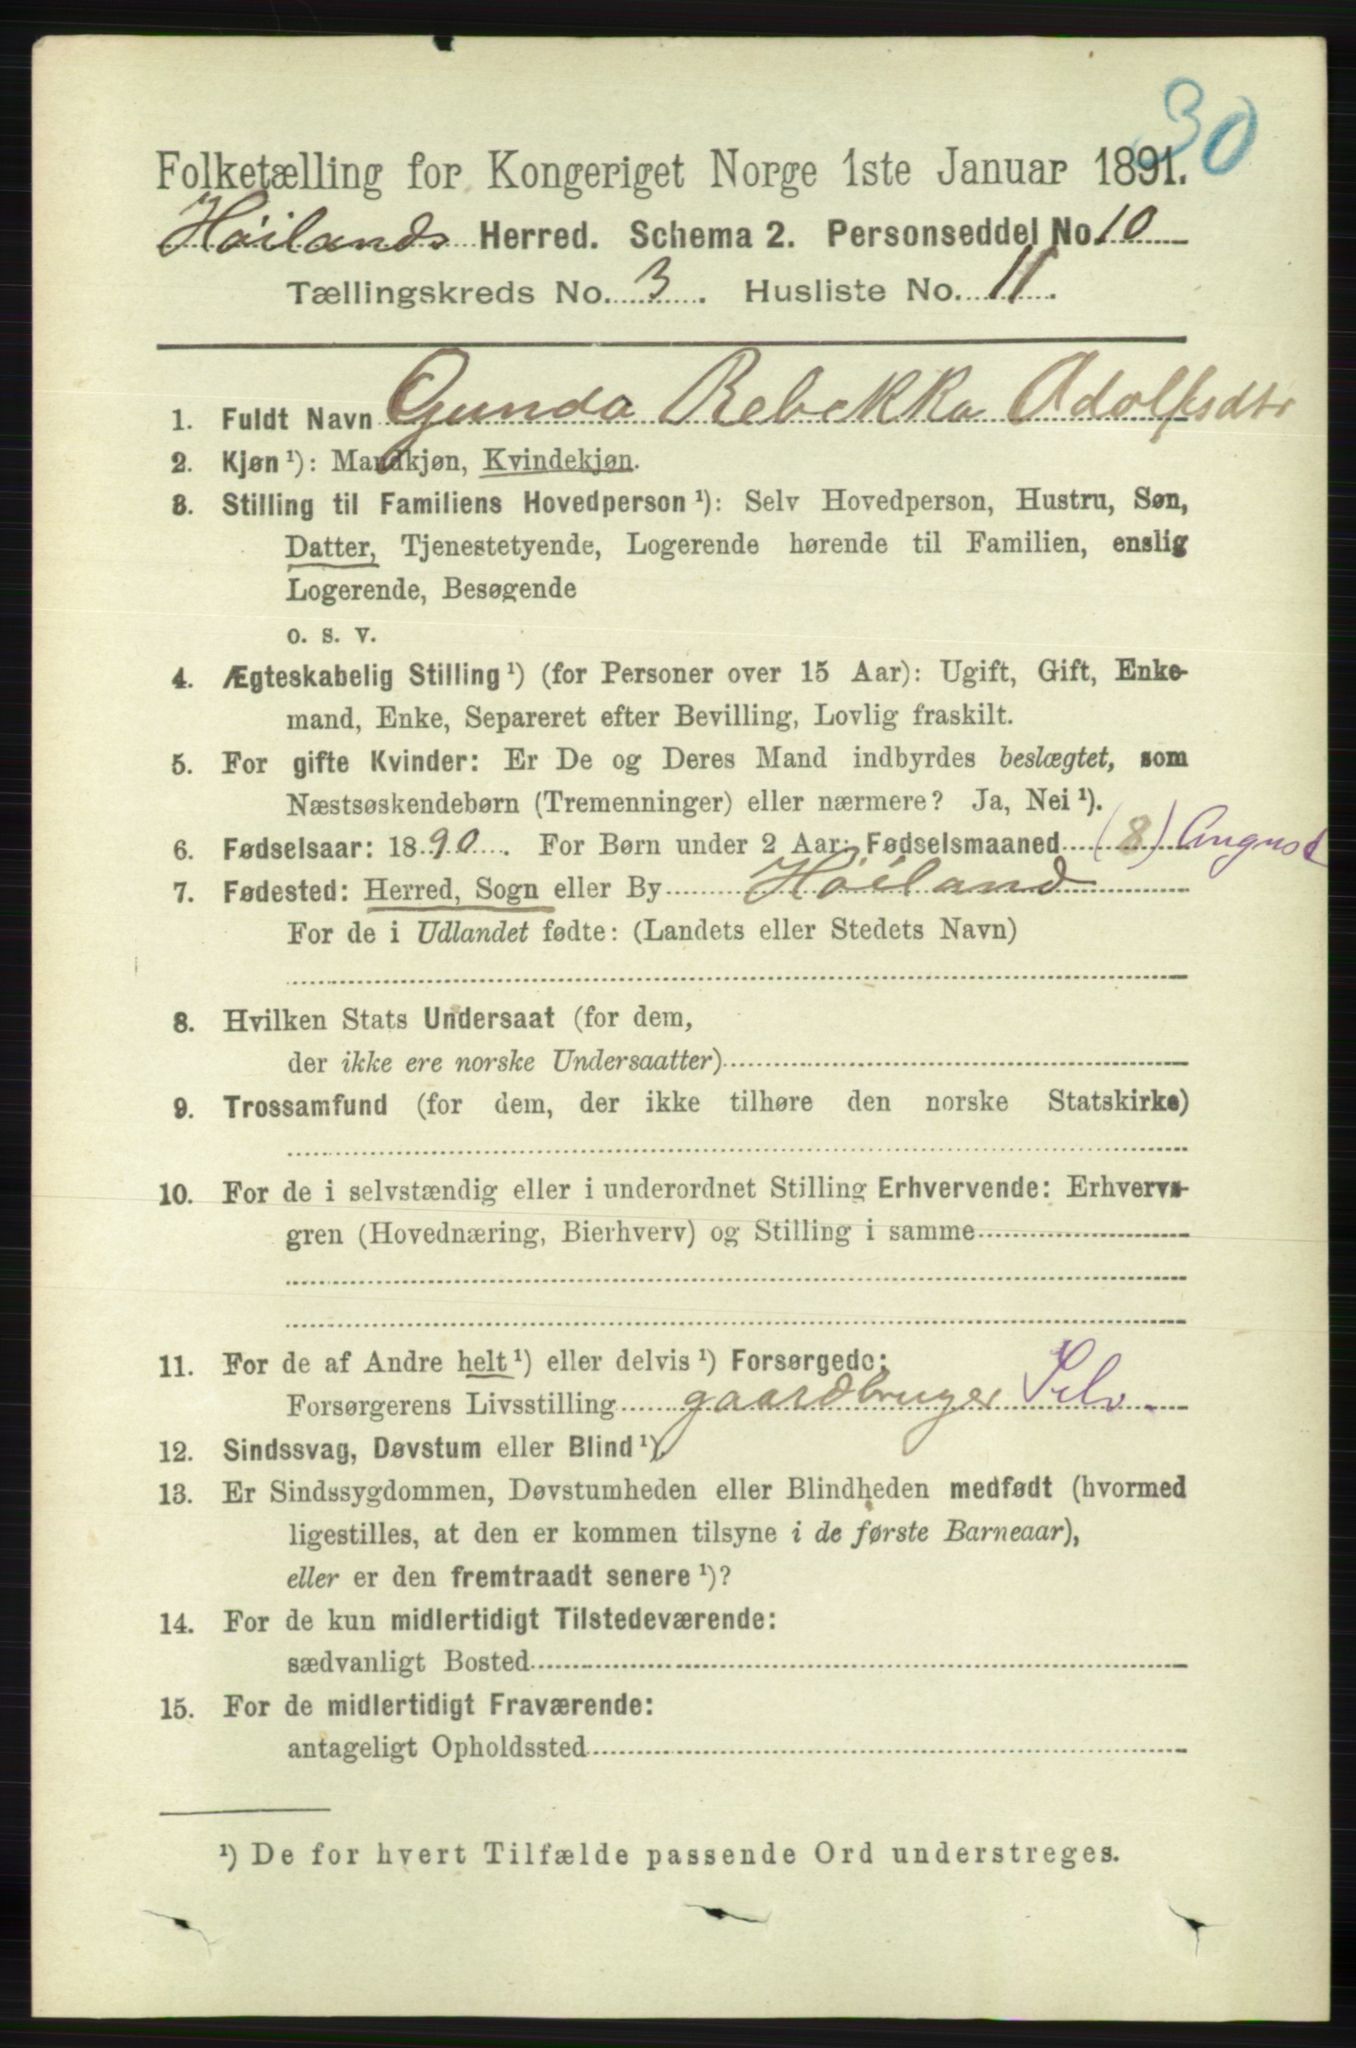 30
Folketælling for Kongeriget Norge 1ste Januar 1891.
Høilands Herred. Schema 2. Personseddel No. 10
Tællingskreds No. 3. Husliste No. 11.
1. Fuldt Navn Gunda Rebekka Adolfsdtr
2. Kjøn¹): Mandkjøn, Kvindekjøn.
3. Stilling til Familiens Hovedperson¹): Selv Hovedperson, Hustru, Søn,
Datter, Tjenestetyende, Logerende hørende til Familien, enslig
Logerende, Besøgende
o. s. v.
4. Ægteskabelig Stilling¹) (for Personer over 15 Aar): Ugift, Gift, Enke-
mand, Enke, Separeret efter Bevilling, Lovlig fraskilt.
5. For gifte Kvinder: Er De og Deres Mand indbyrdes beslægtet, som
Næstsøskendebørn (Tremenninger) eller nærmere? Ja, Nei¹).
6. Fødselsaar: 1890. For Børn under 2 Aar: Fødselsmaaned (8) August
7. Fødested: Herred, Sogn eller By Høiland
For de i Udlandet fødte: (Landets eller Stedets Navn)
8. Hvilken Stats Undersaat (for dem,
der ikke ere norske Undersaatter)
9. Trossamfund (for dem, der ikke tilhøre den norske Statskirke)
10. For de i selvstændig eller i underordnet Stilling Erhvervende: Erhvervs-
gren (Hovednæring, Bierhverv) og Stilling i samme
11. For de af Andre helt¹) eller delvis¹) Forsørgede:
Forsørgerens Livsstilling gaardbruger Selv.
12. Sindssvag, Døvstum eller Blind¹).
13. Er Sindssygdommen, Døvstumheden eller Blindheden medfødt (hvormed
ligestilles, at den er kommen tilsyne i de første Barneaar),
eller er den fremtraadt senere¹)?
14. For de kun midlertidigt Tilstedeværende:
sædvanligt Bosted
15. For de midlertidigt Fraværende:
antageligt Opholdssted
¹) De for hvert Tilfælde passende Ord understreges.